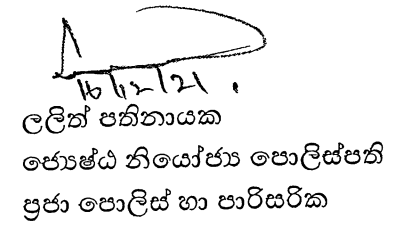 16/12/21.
ලලිත් පතිනායක
ජ්‍යෙෂ්ඨ නියෝජ්‍ය පොලිස්පති
ප්‍රජා පොලිස් හා පාරිසරික